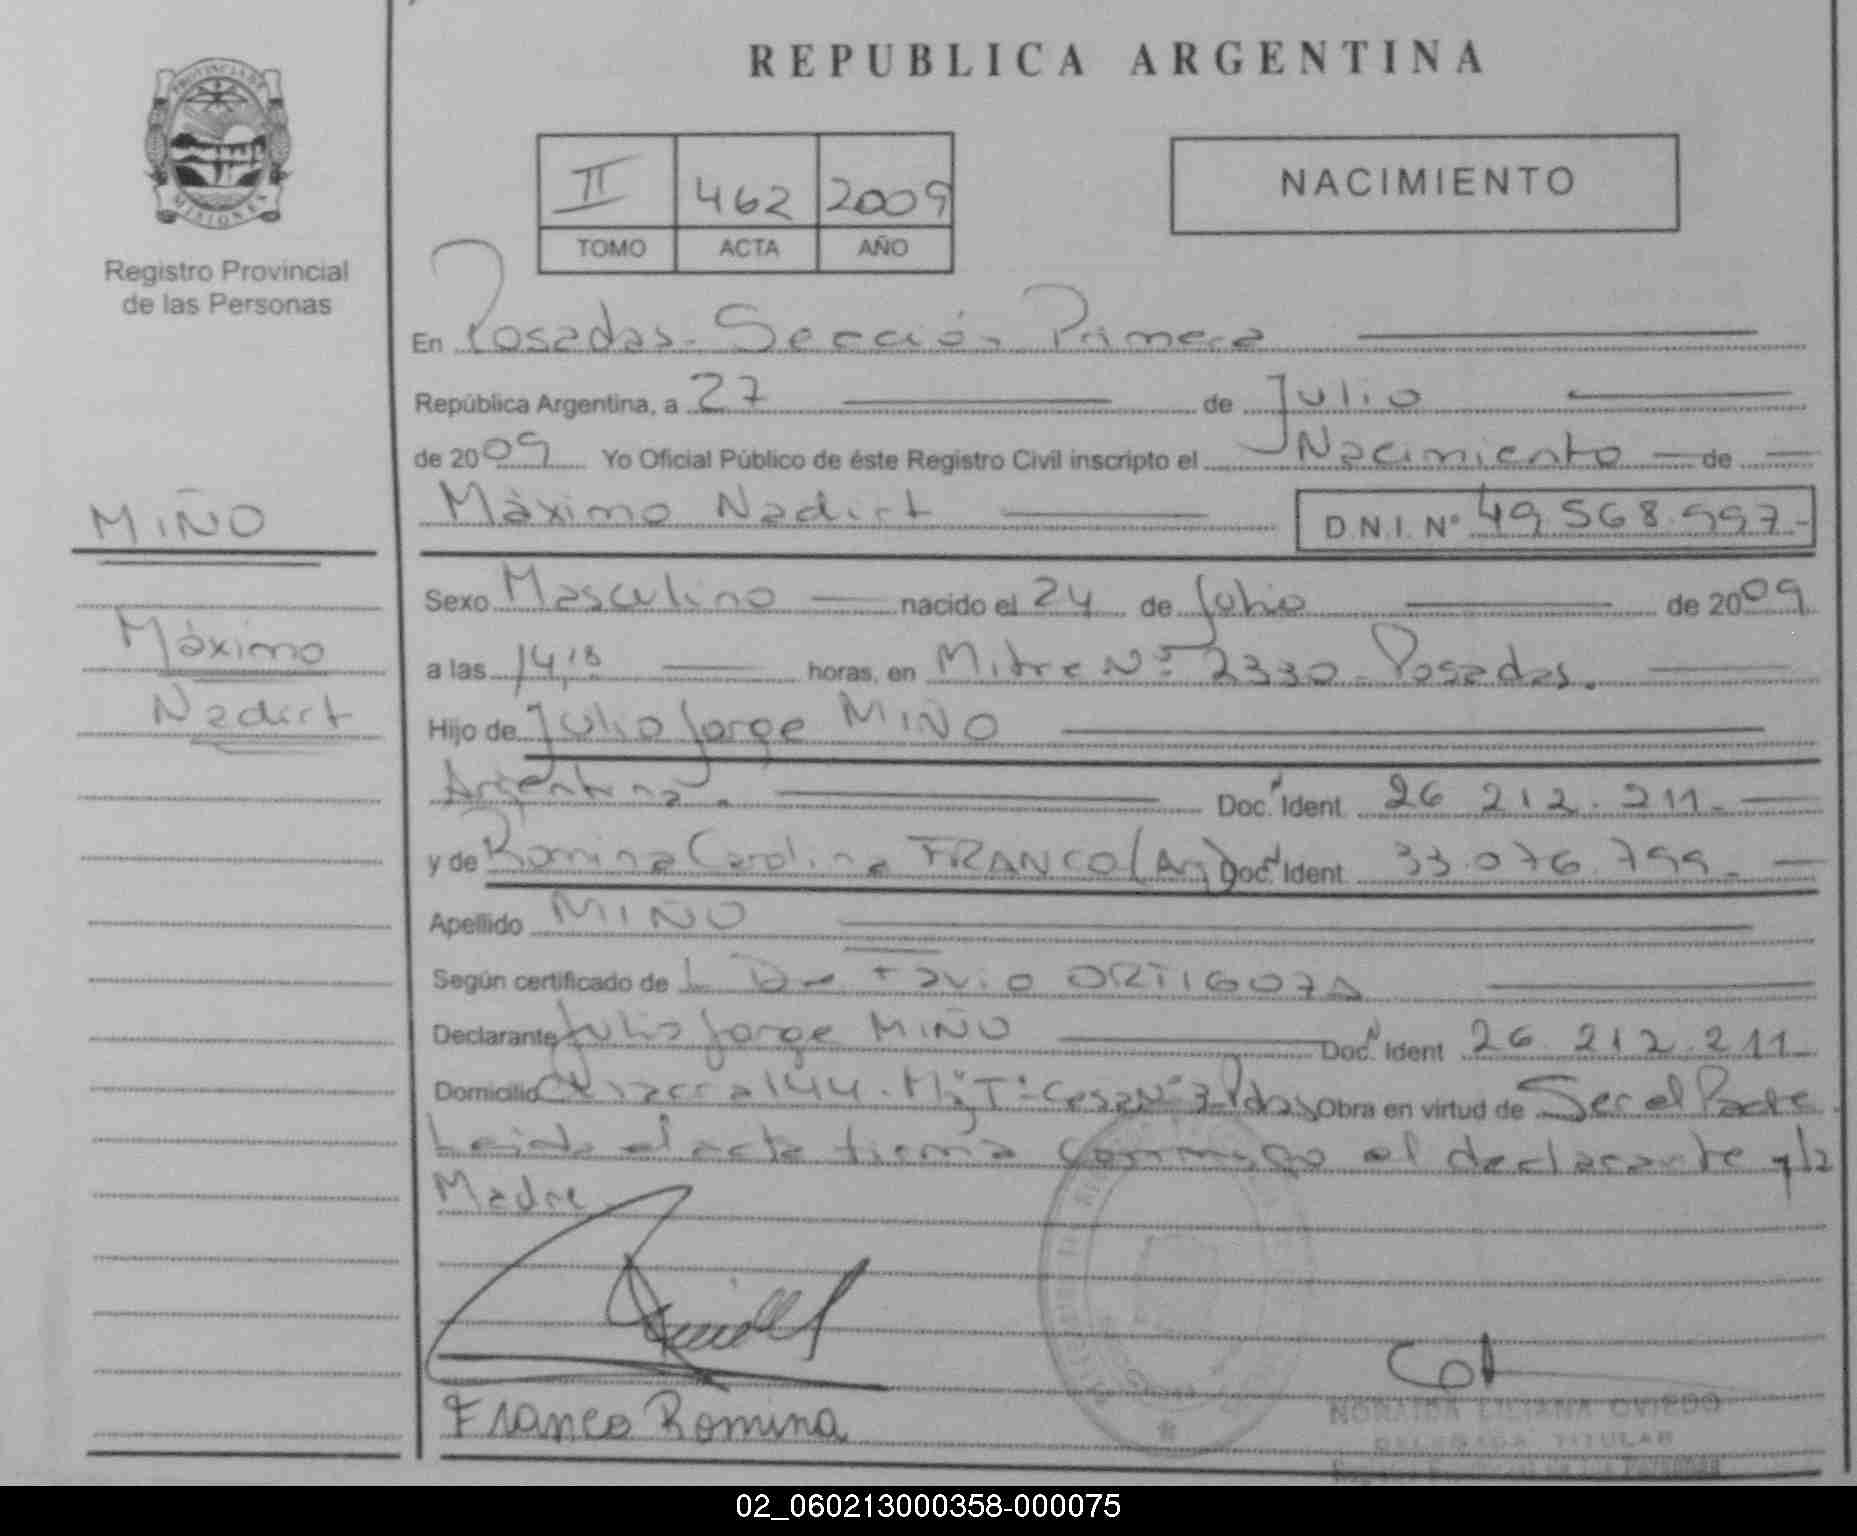 REPUBLICA ARGENTINA
PROVINCIA DE
MISIONES
Registro Provincial
de las Personas
II 462 2009
TOMO ACTA AÑO
NACIMIENTO
En Posadas - Sección Primera
República Argentina, a 27 de Julio
de 2009 Yo Oficial Público de éste Registro Civil inscripto el Nacimiento de
Máximo Nadirt D.N.I. Nº 49.568.997-
MIÑO
Máximo
Nadirt
Sexo Masculino nacido el 24 de Julio de 2009
a las 14,18 horas, en Mitre Nº 2330 - Posadas.
Hijo de Julio Jorge MIÑO
Argentina. Doc. Ident. 26 212.211-
y de Romina Carolina FRANCO (Arg) Doc. Ident. 33.076.799-
Apellido MIÑO
Según certificado de Dr Favio ORTIGOZA
Declarante Julio Jorge MIÑO Doc. Ident 26.212.211
Domicilio Chacra 144 - Casa Nº 3 Pdas Obra en virtud de Ser el Padre.
Leida el acta firma conmigo el declarante y la
Madre
Franco Romina
NORAIDA LILIANA OVIEDO
DELEGADA TITULAR
02_060213000358-000075